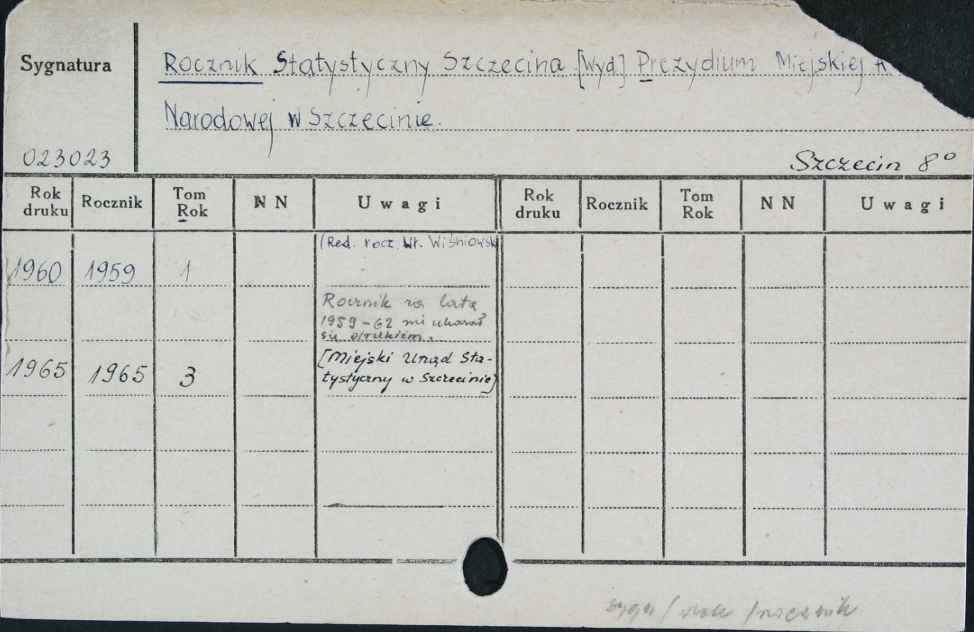 Sygnatura
Rocznik Statystyczny Szczecina [Wyd] Prezydium Miejskiej
Narodowej w Szczecinie.
023023
Szczecin 8°
Rok druku Rocznik Tom Rok NN Uwagi Rok druku Rocznik Tom Rok NN Uwagi
(Red. rocz. Wł. Wiśniowsk
1960 1959 1
Rocznik za lata
1959-62 nie ukazał
się drukiem.
1965 1965 3 [Miejski Urząd Sta-
tystyczny w Szczecinie]
sygn / rok / rocznik